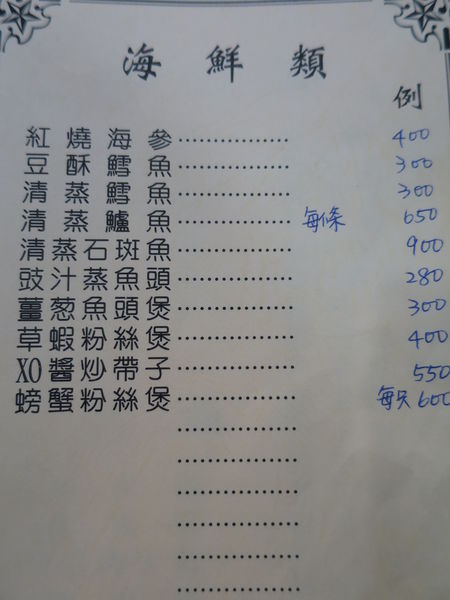 海鮮類
例
紅燒海參 400
豆酥鱈魚 300
清蒸鱈魚 300
清蒸鱸魚 每條 650
清蒸石斑魚 900
豉汁蒸魚頭 280
薑葱魚頭煲 300
草蝦粉絲煲 400
XO醬炒帶子 550
螃蟹粉絲煲 每只 600